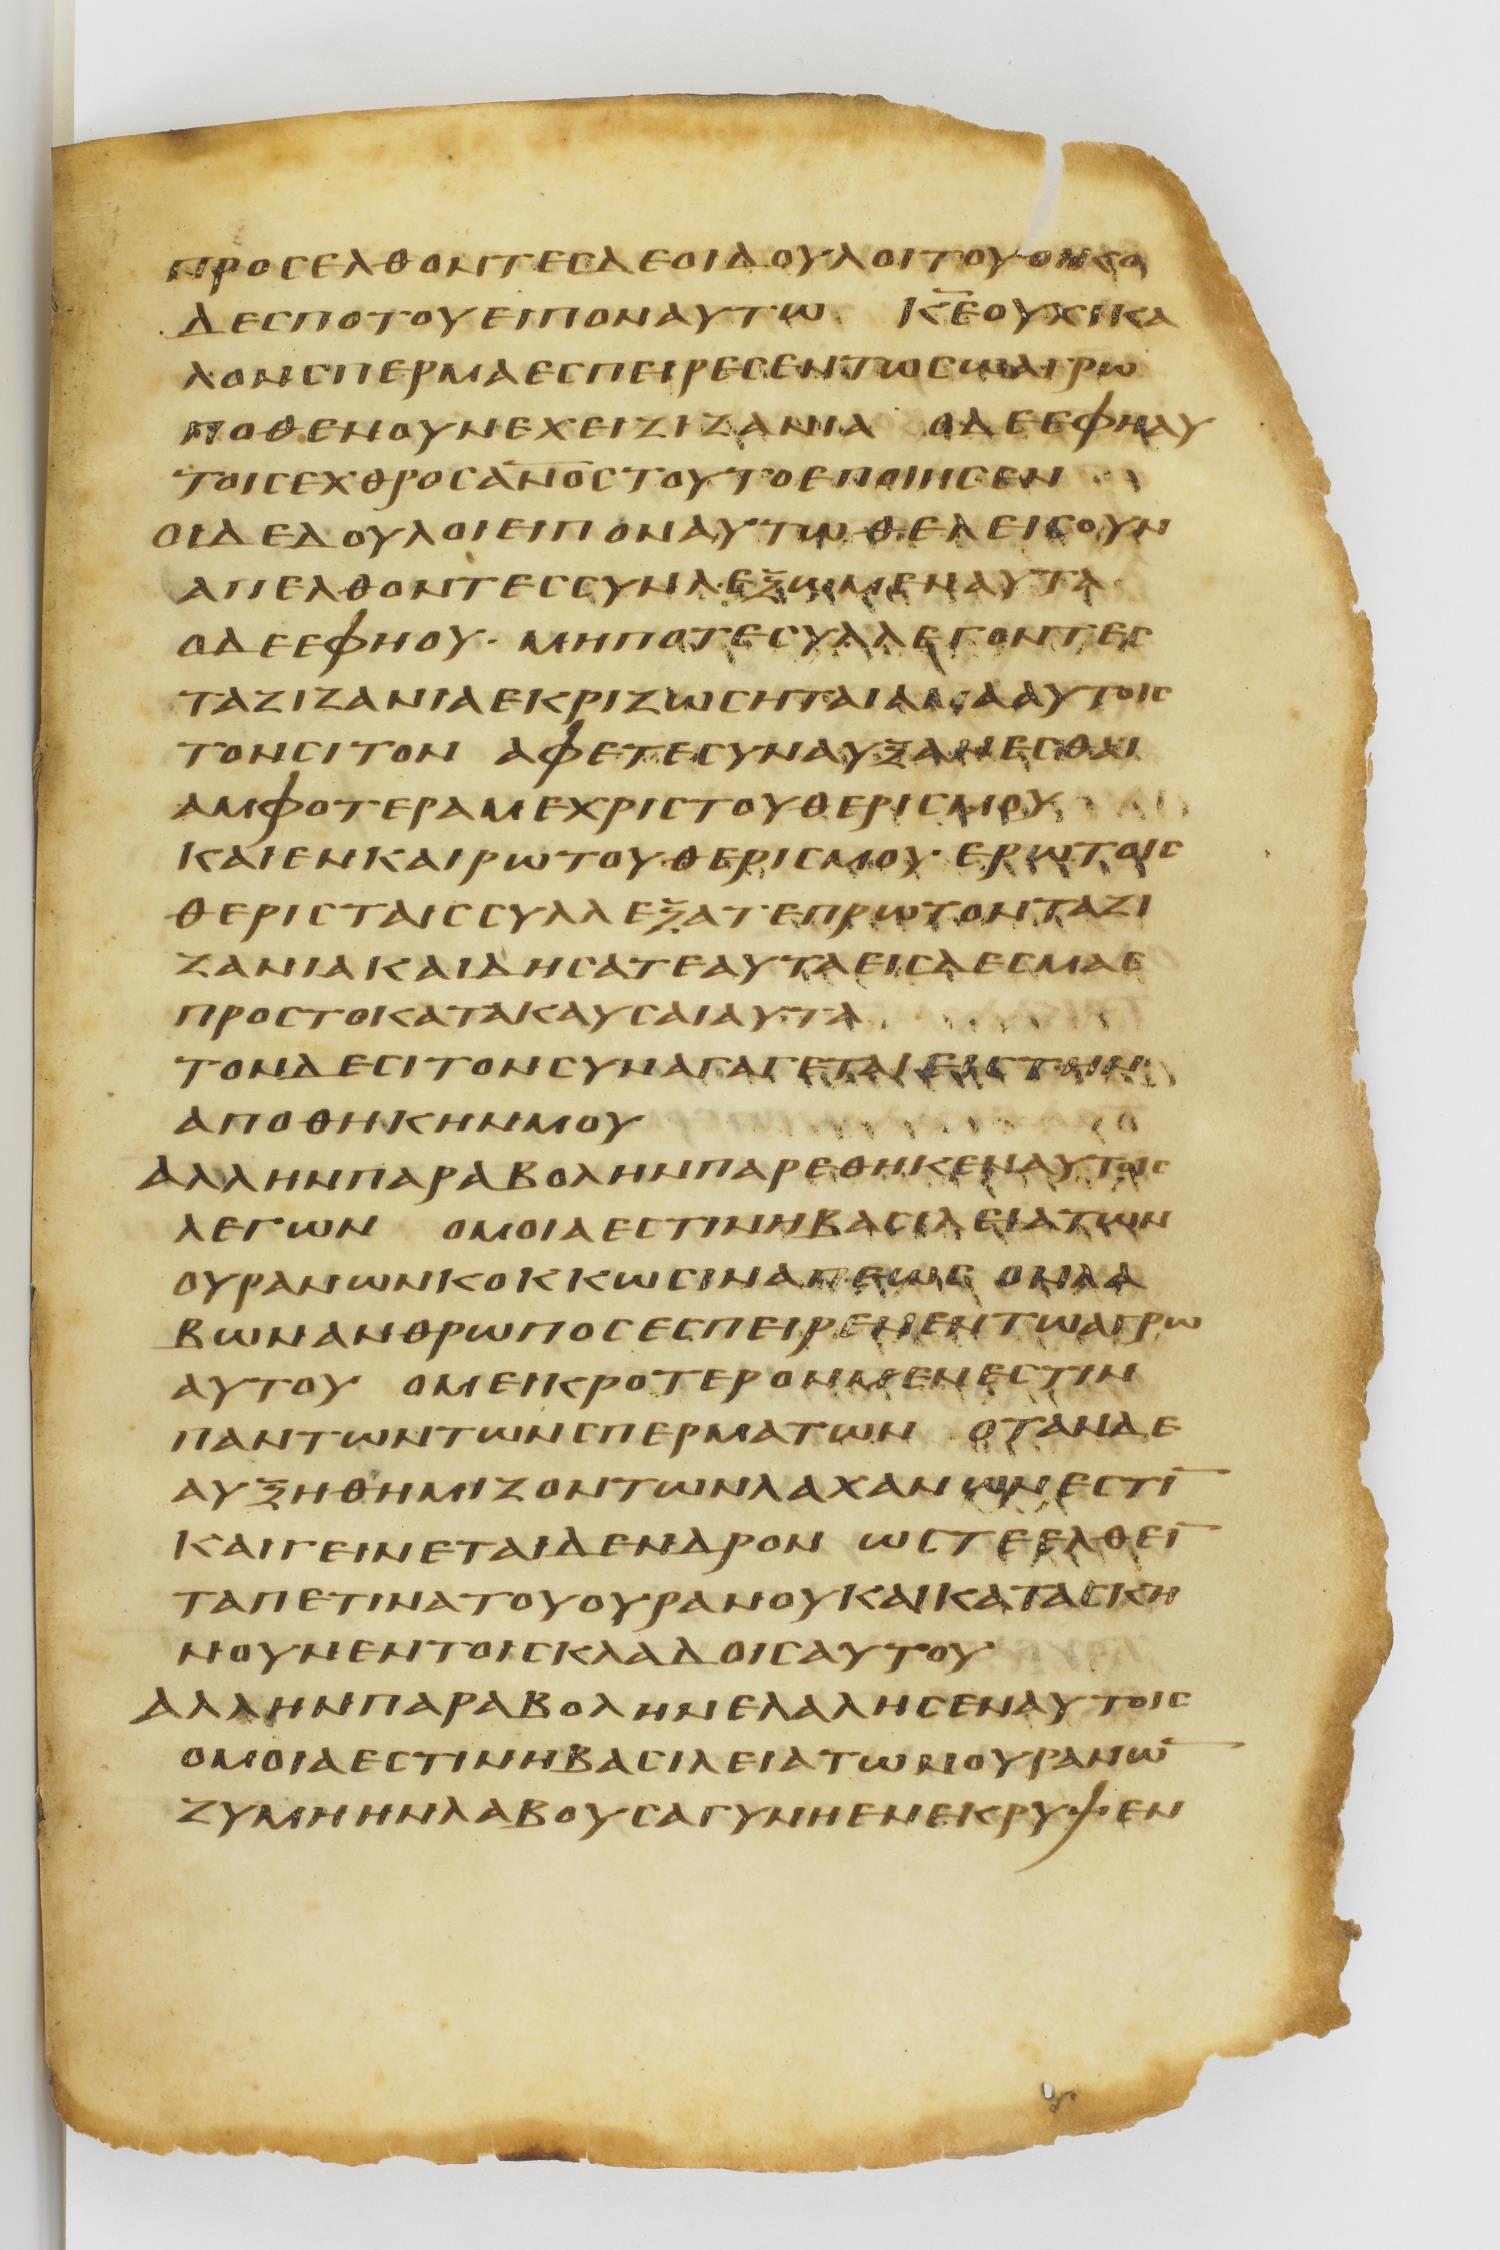 ΠΡΟСΕΛΘΟΝΤΕСΔΕΟΙΔΟΥΛΟΙΤΟΥΟΙΚΟ
ΔΕСΠΟΤΟΥΕΙΠΟΝΑΥΤΩ Κ̅Ε̅ΟΥΧΙΚΑ
ΛΟΝСΠΕΡΜΑΕСΠΕΙΡΕСΕΝΤΩСΩΑΓΡΩ
ΠΟΘΕΝΟΥΝΕΧΕΙΖΙΖΑΝΙΑ ΟΔΕΕΦΗΑΥ
ΤΟΙСΕΧΘΡΟСΑ̅Ν̅Ο̅С̅ΤΟΥΤΟΕΠΟΙΗСΕΝ
ΟΙΔΕΔΟΥΛΟΙΕΙΠΟΝΑΥΤΩΘΕΛΕΙСΟΥΝ
ΑΠΕΛΘΟΝΤΕССΥΝΛΕΞΩΜΕΝΑΥΤΑ
ΟΔΕΕΦΗΟΥ· ΜΗΠΟΤΕСΥΛΛΕΓΟΝΤΕС
ΤΑΖΙΖΑΝΙΑΕΚΡΙΖΩСΗΤΑΙΑΜΑΑΥΤΟΙС
ΤΟΝСΙΤΟΝ ΑΦΕΤΕСΥΝΑΥΞΑΝΕСΘΑΙ
ΑΜΦΟΤΕΡΑΜΕΧΡΙСΤΟΥΘΕΡΙСΜΟΥ
ΚΑΙΕΝΚΑΙΡΩΤΟΥΘΕΡΙСΜΟΥ·ΕΡΩΤΟΙС
ΘΕΡΙСΤΑΙССΥΛΛΕΞΑΤΕΠΡΩΤΟΝΤΑΖΙ
ΖΑΝΙΑΚΑΙΔΗСΑΤΕΑΥΤΑΕΙСΔΕСΜΑС
ΠΡΟСΤΟΚΑΤΑΚΑΥСΑΙΑΥΤΑ
ΤΟΝΔΕСΙΤΟΝСΥΝΑΓΑΓΕΤΑΙΕΙСΤΗΝ
ΑΠΟΘΗΚΗΝΜΟΥ
ΑΛΛΗΝΠΑΡΑΒΟΛΗΝΠΑΡΕΘΗΚΕΝΑΥΤΟΙС
ΛΕΓΩΝ ΟΜΟΙΑΕСΤΙΝΗΒΑСΙΛΕΙΑΤΩΝ
ΟΥΡΑΝΩΝΚΟΚΚΩСΙΝΑΠΕΩС ΟΝΛΑ
ΒΩΝΑΝΘΡΩΠΟСΕСΠΕΙΡΕΝΕΝΤΩΑΓΡΩ
ΑΥΤΟΥ ΟΜΕΙΚΡΟΤΕΡΟΝΜΕΝΕСΤΙΝ
ΠΑΝΤΩΝΤΩΝСΠΕΡΜΑΤΩΝ ΟΤΑΝΔΕ
ΑΥΞΗΘΗΜΙΖΟΝΤΩΝΛΑΧΑΝΩΝΕСΤΙ̅
ΚΑΙΓΕΙΝΕΤΑΙΔΕΝΔΡΟΝ ΩСΤΕΕΛΘΕΙ̅
ΤΑΠΕΤΙΝΑΤΟΥΟΥΡΑΝΟΥΚΑΙΚΑΤΑСΚΗ
ΝΟΥΝΕΝΤΟΙСΚΛΑΔΟΙСΑΥΤΟΥ
ΑΛΛΗΝΠΑΡΑΒΟΛΗΝΕΛΑΛΗСΕΝΑΥΤΟΙС
ΟΜΟΙΑΕСΤΙΝΗΒΑСΙΛΕΙΑΤΩΝΟΥΡΑΝΩ̅
ΖΥΜΗΗΝΛΑΒΟΥСΑΓΥΝΗΕΝΕΚΡΥΨΕΝ